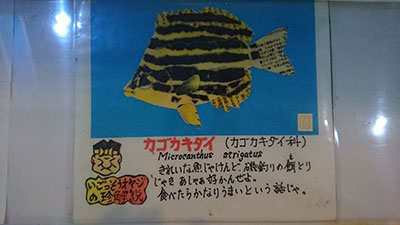 カゴカキダイ (カゴカキダイ科)
Microcanthus strigatus
きれいな魚じゃけんど、磯釣りの餌とり
じゃき あしゃぁ好かんぜよ。
食べたらかなりうまいという話じゃ。
いごっそオヤジ
の珍解説